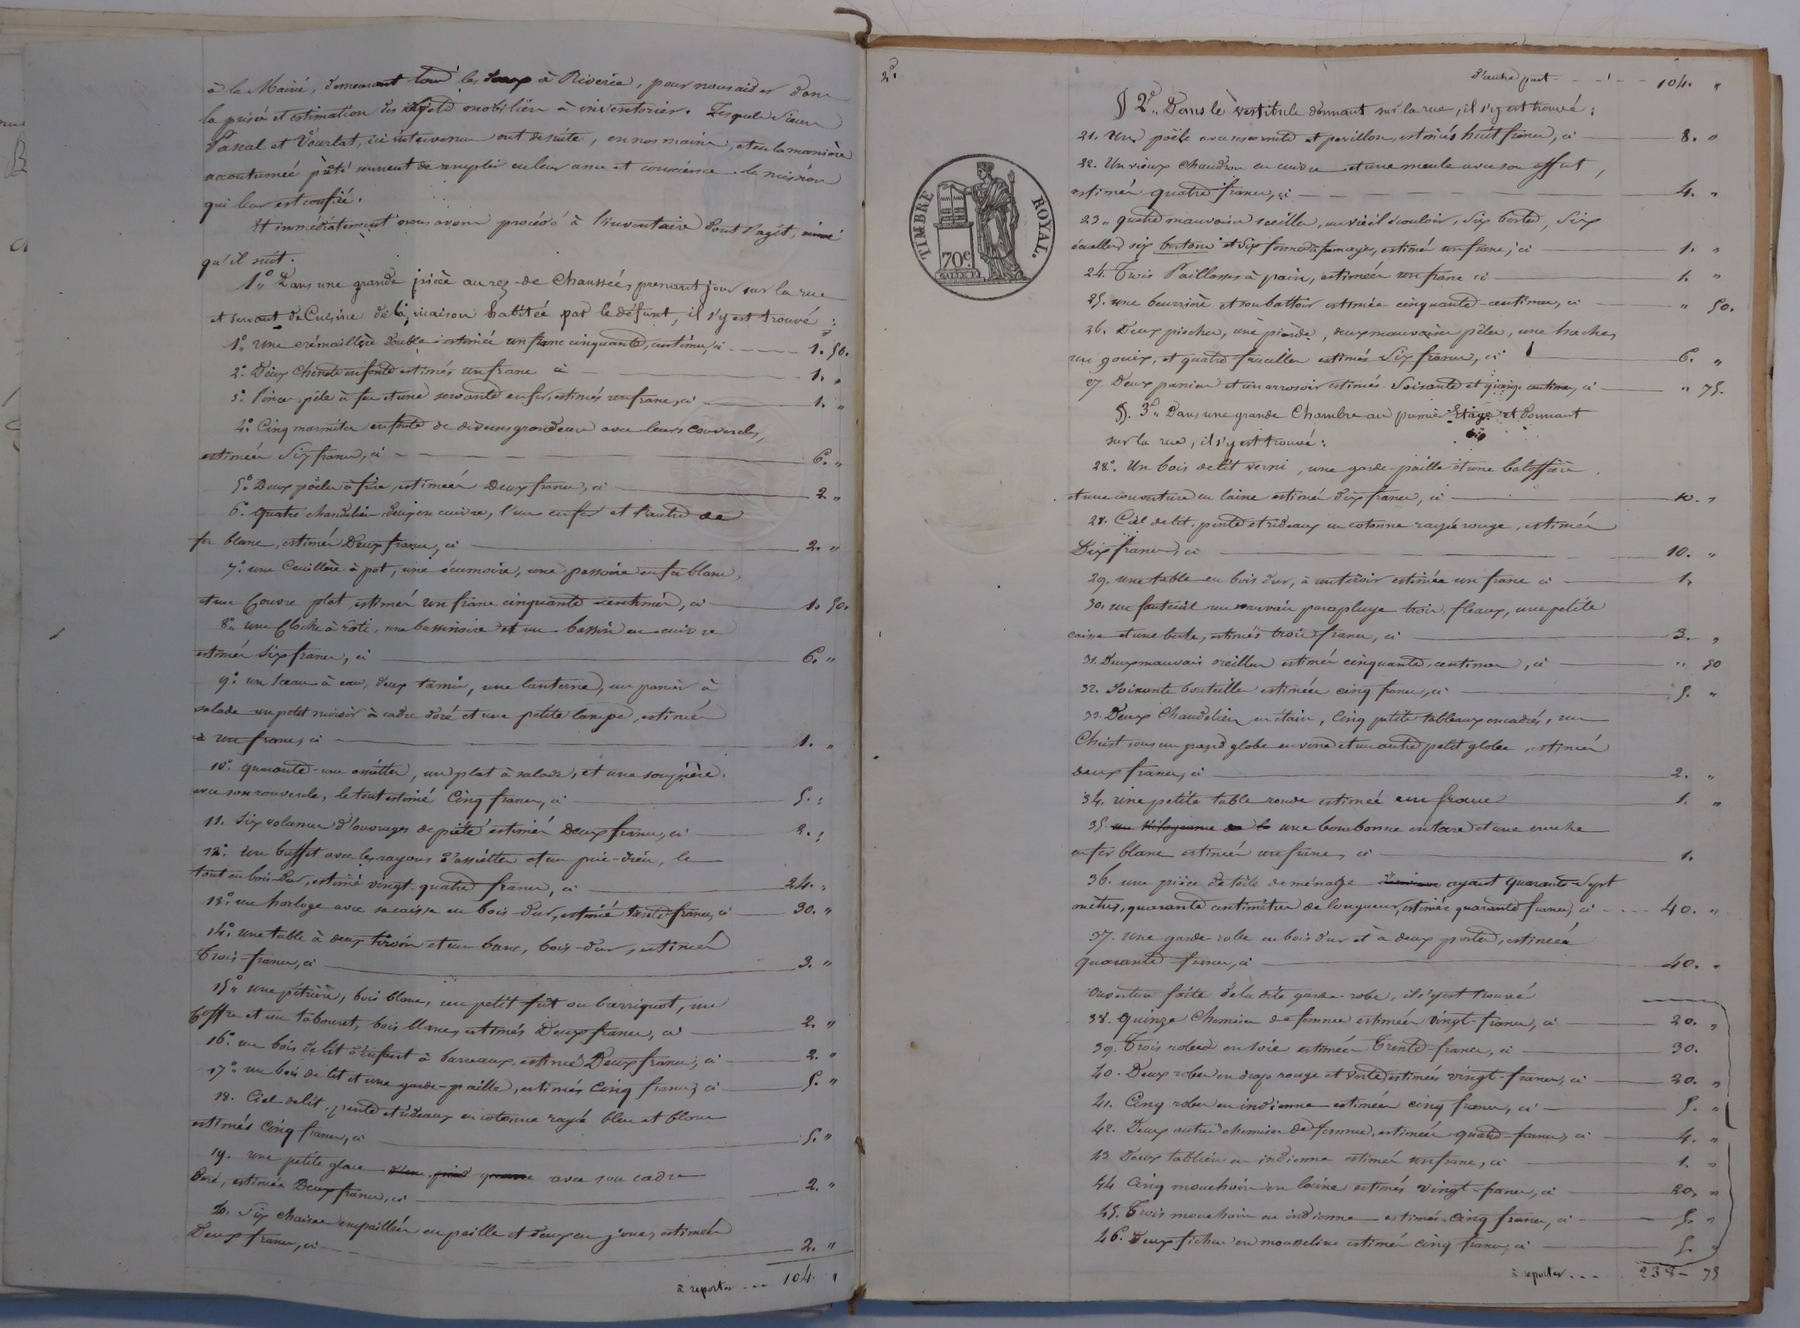 à la Mairie, demeurant tous les deux à Riverie, pour nous aider dans
la prisée et estimation des objets mobiliers à inventorier. Lesquels Sieurs
Pascal et Vourlat, ici intervenus ont de suite, en nos mains, et en la manière
accoutumée prêté serment de remplir en leur ame et conscience la mission
qui leur est confiée.
Et immédiatement nous avons procédé à l'inventaire dont s'agit, ainsi
qu'il suit.
1° Dans une grande pièce au rez-de-Chaussée, prenant jour sur la rue
et servant de Cuisine de la maison habitée par le défunt, il s'y est trouvé :
1° Une crémaillère double estimée un franc cinquante centimes, ci 1. 50.
2° Deux Chenets en fonte estimés un franc ci 1. "
3° Pince, pèle à feu et une servante en fer, estimés un franc, ci 1. "
4° Cinq marmites en fonte de diverses grandeurs avec leurs couvercles,
estimées Six francs, ci 6. "
5° Deux poëles à frire, estimées Deux francs, ci 2 "
6° quatre chandeliers deux en cuivre, l'un en fer et l'autre de
fer blanc, estimés Deux francs, ci 2. "
7° une Cuillère à pot, une écumoire, une passoire en fer blanc,
et un Couvre plat estimés un franc cinquante centimes, ci 1. 50.
8° une Cloche à rôti, une bassinoire et un bassin en cuivre
estimés six francs, ci 6. "
9° un seau à eau, deux tamis, une lanterne, un panier à
salade un petit miroir à cadre doré et une petite lampe, estimés
à un franc, ci 1. "
10° quarante-une assiettes, un plat à salade, et une soupière
avec son couvercle, le tout estimé Cinq francs, ci 5. "
11. Six volumes d'ouvrages de piété estimés Deux francs, ci 2. "
12° Un buffet avec les rayons d'assiettes et un prie-Dieu, le
tout en bois-dur, estimé vingt-quatre francs, ci 24. "
13° un horloge avec sa caisse en bois-dur, estimé trente francs, ci 30. "
14° une table à deux tiroirs et un banc, bois-dur, estimés
Trois francs, ci 3. "
15° une pétrière, bois blanc, un petit fût ou barriquot, un
Coffre et un tabouret, bois blanc, estimés Deux francs, ci 2. "
16° un bois de lit d'enfant à barreaux, estimé Deux francs, ci 2. "
17° un bois de lit et une garde-paille, estimés Cinq francs, ci 5. "
18. Ciel de lit, pente et rideaux en cotonne rayé bleu et blanc
estimés Cinq francs, ci 5. "
19. une petite glace avec son cadre
doré, estimée Deux francs, ci 2. "
20. Six chaises empaillées en paille et deux en joncs, estimées
Deux francs, ci 2. "
à reporter ... 104. "
2°.
D'autre part 104. "
§ 2° Dans le vestibule donnant sur la rue, il s'y est trouvé :
21. Un poële avec marmite et pavillon, estimés huit francs, ci 8. "
22. Un vieux chaudron en cuivre et une meule avec son affût,
estimés quatre francs, ci 4. "
23. quatre mauvaises seilles, un vieil écouloir, Six
écuelles, six et Six formes à fromages, estimés un franc, ci 1. "
24. Trois Paillasses à pain, estimées un franc ci 1. "
25. une beurrière et son battoir estimés cinquante centimes, ci " 50.
26. Deux pioches, une, deux mauvaises pèles, une hache,
un gouix, et quatre faucilles estimés Six francs, ci 6. "
27. Deux paniers et un arrosoir estimés Soixante et quinze centimes, ci " 75.
§. 3° Dans une grande Chambre au premier Etage et donnant
sur la rue, il s'y est trouvé :
28° Un bois de lit verni, une garde-paille et une balassière
et une couverture en laine estimés dix francs, ci 10. "
28. Ciel de lit, pente et rideaux en cotonne rayée rouge, estimés
Dix francs, ci 10. "
29. une table en bois dur, à un tiroir estimée un franc ci 1.
30. un fauteuil un mauvais parapluye trois fleaux, une petite
caisse et une, estimés trois francs, ci 3. "
31. Deux mauvais oreillers estimés cinquante centimes, ci " 50
32. Soixante bouteilles estimées cinq francs, ci 5. "
33. Deux Chandeliers en étain, Cinq petits tableaux encadrés, un
Christ sous un grand globe en verre et un autre petit globe, estimés
Deux francs, ci 2. "
34. une petite table ronde estimée un franc 1. "
35. un Kilogramme de une bonbonne en terre et une cruche
en fer blanc estimées un franc, ci 1.
36. une pièce de toile de ménage ayant quarante-sept
mètres, quarante centimètres de longueur, estimée quarante francs, ci 40. "
37. une garde-robe en bois dur et à deux portes, estimée
quarante francs, ci 40. "
Ouverture faite de la dite garde-robe, il s'y est trouvé
38. Quinze Chemises de femme estimées vingt-francs, ci 20. "
39. Trois robes en soie estimées Trente francs, ci 30.
40. Deux robes en drap rouge et verte estimées vingt-francs, ci 20. "
41. Cinq robes en indienne estimées cinq francs, ci 5. "
42. Deux autres chemises de femme, estimées quatre francs, ci 4. "
43 Deux tabliers en indienne estimés un franc, ci 1. "
44 Cinq mouchoirs en laine estimés vingt-francs, ci 20. "
45. Trois mouchoirs en indienne estimés cinq francs, ci 5. "
46. Deux fichus en mousseline estimés cinq francs, ci 5. "
à reporter ... 238 - 75
TIMBRE ROYAL.
70c